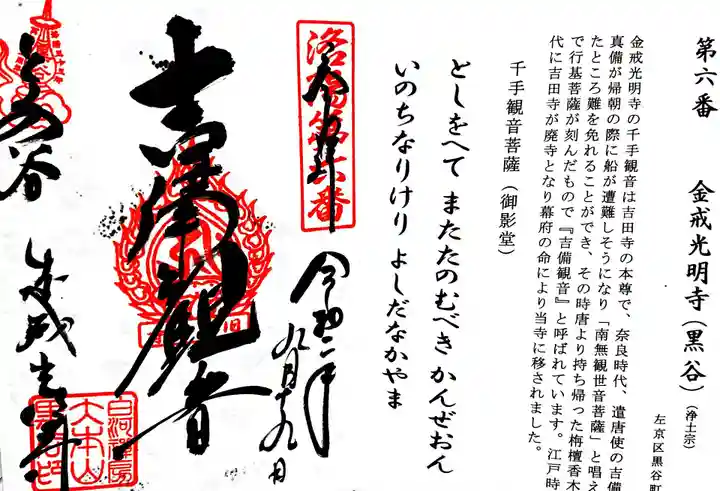 第六番 金戒光明寺(黒谷)(浄土宗)
左京区黒谷町
金戒光明寺の千手観音は吉田寺の本尊で、奈良時代、遣唐使の吉備
真備が帰朝の際に船が遭難しそうになり「南無観世音菩薩」と唱え
たところ難を免れることができ、その時唐より持ち帰った栴檀香木
で行基菩薩が刻んだもので『吉備観音』と呼ばれています。江戸時
代に吉田寺が廃寺となり幕府の命により当寺に移されました。
千手観音菩薩(御影堂)
としをへて またたのむべき かんぜおん
いのちなりけり よしだなかやま
洛陽第六番
奉拝
令和二年
九月十九日
吉備観音
くろ谷
金戒光明寺
白河禅房
大本山
黒谷印